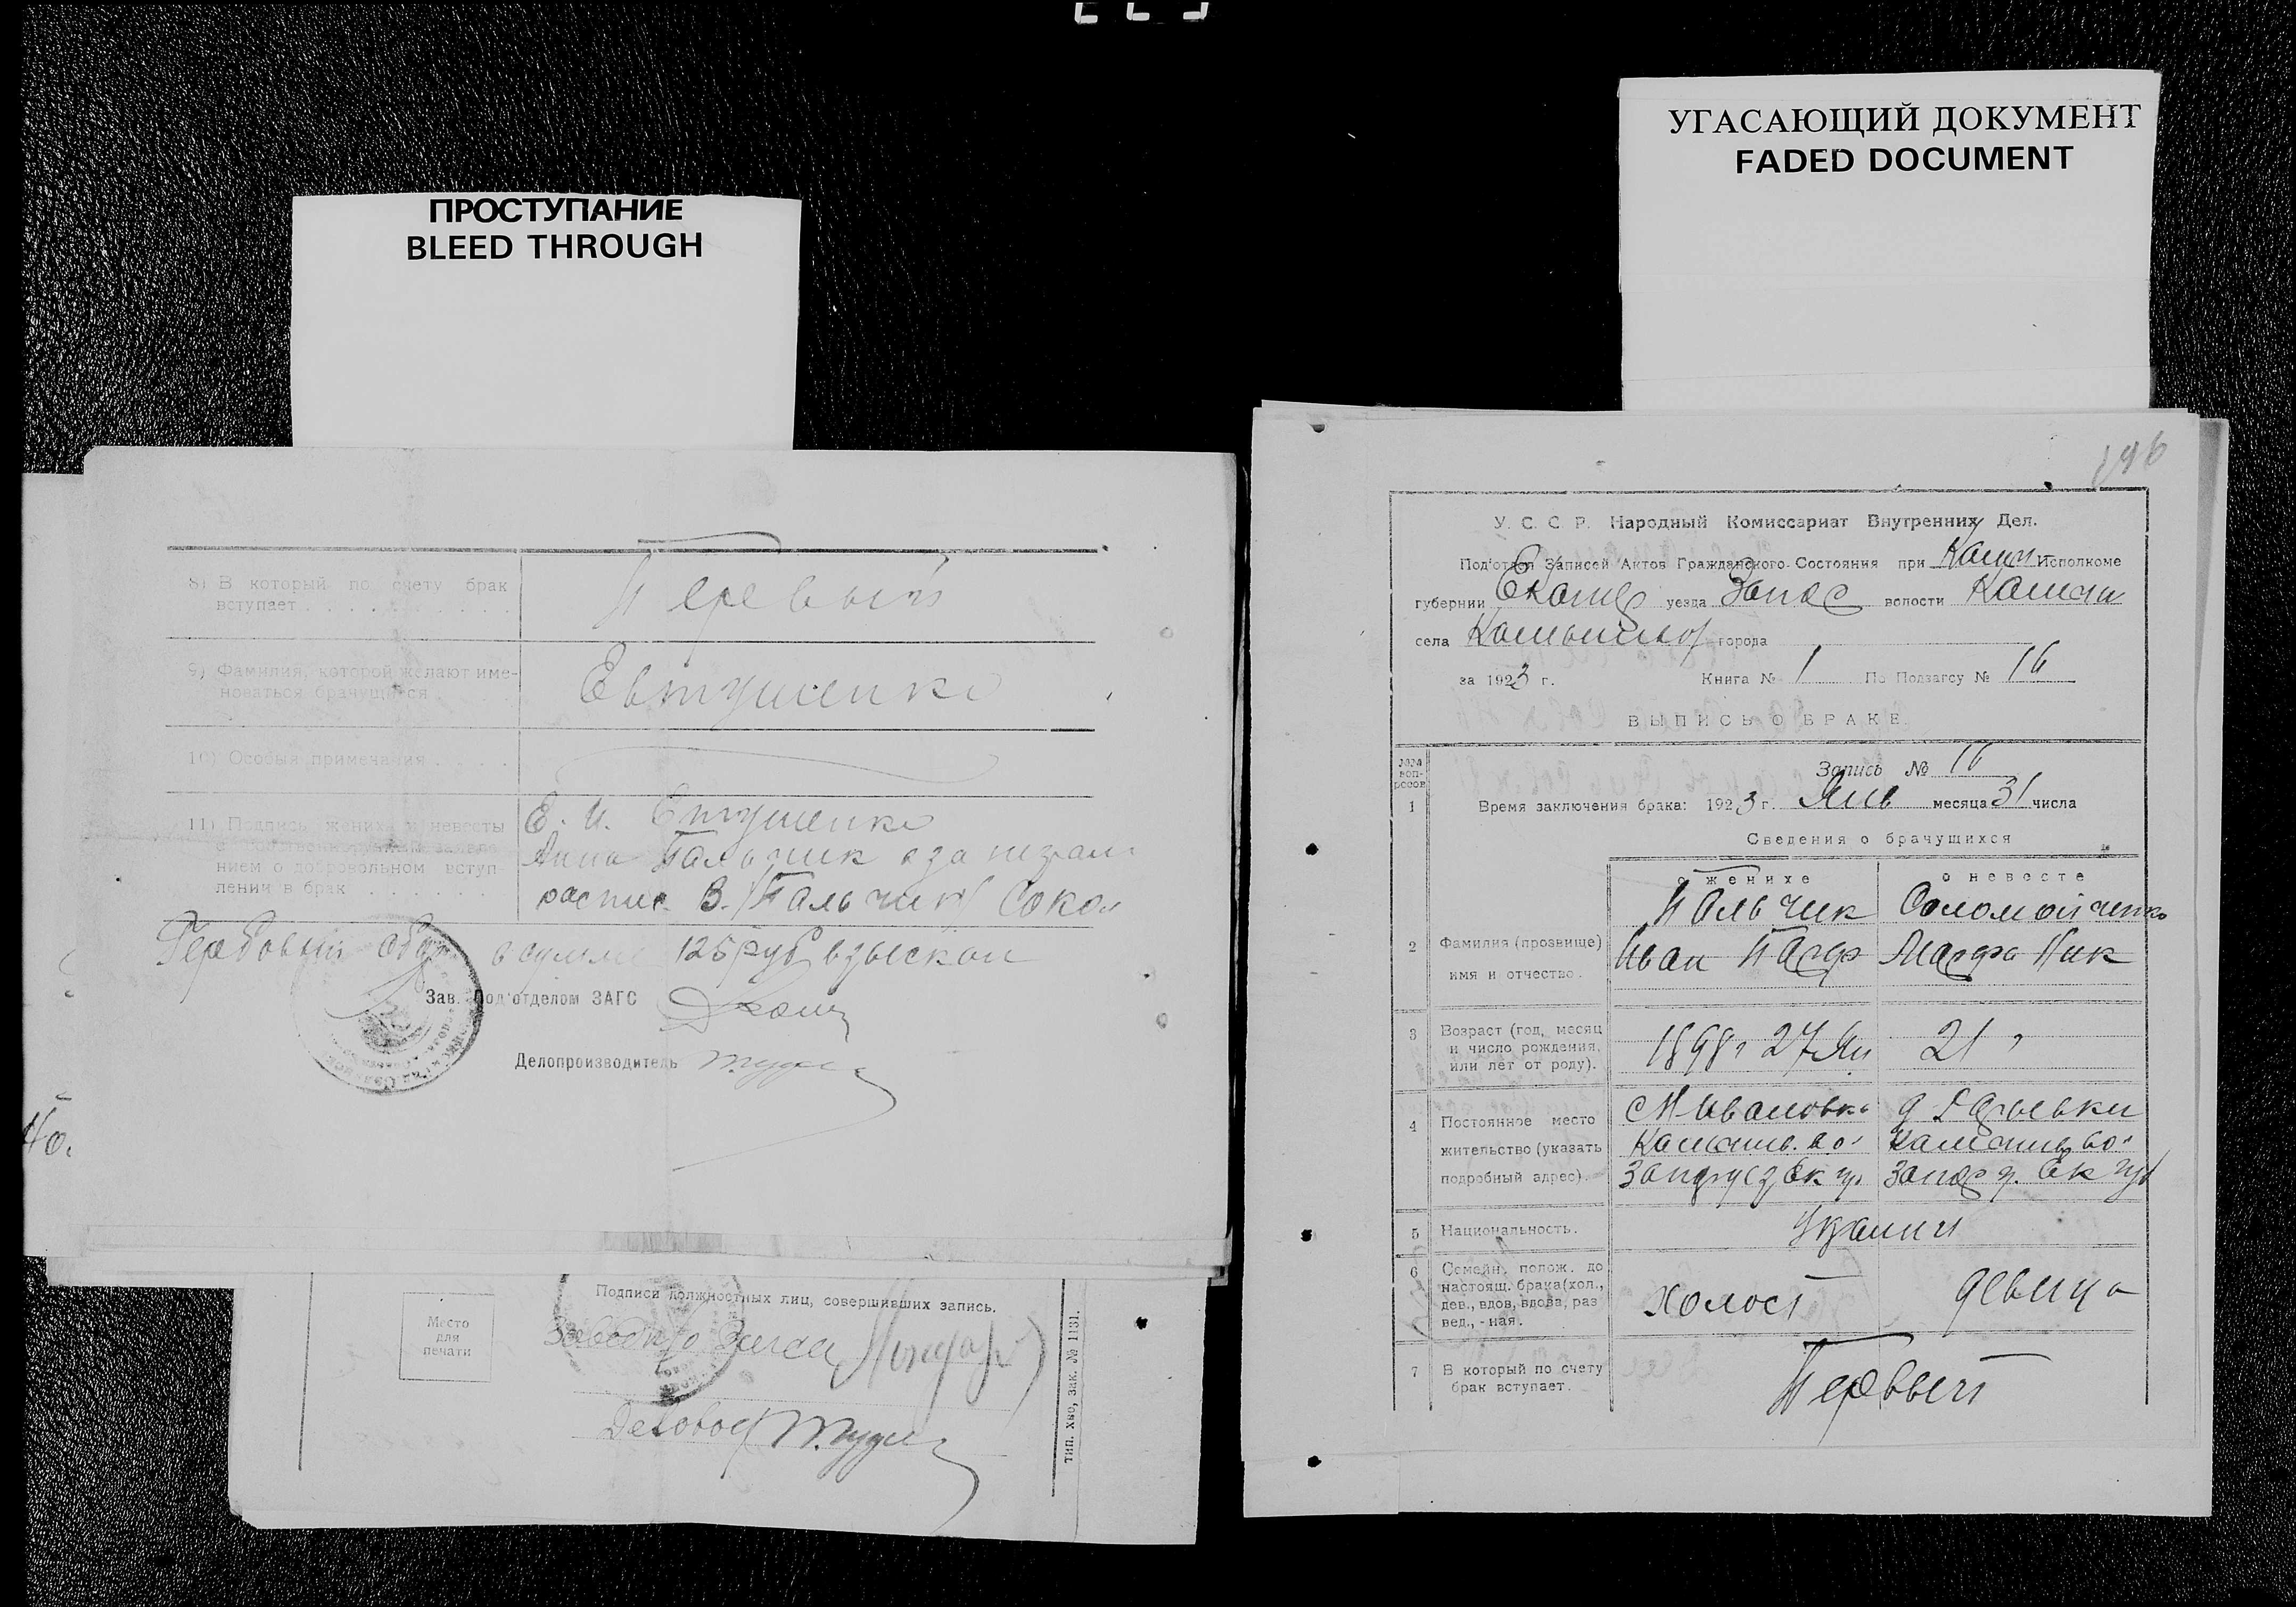 ПРОСТУПАНИЕ
BLEED THROUGH
8) В который по счету брак
вступает
Первый
9) Фамилия, которой желают име-
новаться брачущиеся
Евтушенко
10) Особыя примечания
11) Подпись жениха и невесты
нием о добровольном вступ-
лении в брак
Е. И. Евтушенко
Анна Пальчик а за неграм
распис. В. Пальчик Сокол
Гербовый сбор в сумме 125 руб взыскан
Зав. Под'отделом ЗАГС
Делопроизводитель
Место
для
печати
Подписи должностных лиц, совершивших запись.
Деловод
тип. хво, зак. № 1131.
УГАСАЮЩИЙ ДОКУМЕНТ
FADED DOCUMENT
196
У. С. С. Р. Народный Комиссариат Внутренних Дел.
Под'отдел Записей Актов Гражданского Состояния при Камы Исполкоме
губернии Екатер уезда Запор волости Камыш
села города
за 1923 г. Книга № 1 По Подзагсу № 16
ВЫПИСЬ О БРАКЕ.
№№ воп-
росов
Запись № 16
1 Время заключения брака: 1923 г. Янв месяца 31 числа
Сведения о брачущихся
о женихе о невесте
2 Фамилия (прозвище)
имя и отчество.
Пальчик
Иван Парф
Соломойченко
Марфа Ник
3 Возраст (год, месяц
и число рождения,
или лет от роду).
1898 г 27 Ян
21 г
4 Постоянное место
жительство (указать
подробный адрес).
с Ивановка
Камыш. во
Запор уез Ек гу.
д Дарьевки
Камышев во
Запор у. Ек губ
5 Национальность.
Украин
6 Семейн. полож. до
настоящ. брака (хол.,
дев., вдов, вдова, раз
вед., - ная.
холост
девица
7 В который по счету
брак вступает.
Первый